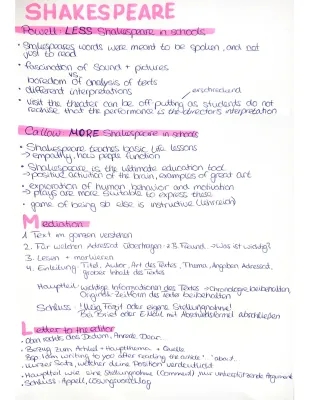 SHAKESPEARE
Powell LESS Shakespeare in schools
• Shakespeares words were meant to be spoken, and not
just to read
• fascination of sound + pictures
vs.
boredom of analysis of texts
• different interpretations
erschreckend
• visit the theater can be off putting as students do not
realise that the performance is the director's interpretation
Callow MORE Shakespeare in schools
• Shakespeare teaches basic life lessons
→ empathy, how people function
• Shakespeare is the ultimate education tool
→ positive activation of the brain, examples of great art
• exploration of human behavior and motivation
→ plays are more suitable to express these
• game of being so else is instructive (lehrreich)
Mediation
1. Text im ganzen verstehen
2. Für welchen Adressat übertragen z.B. Freund →Was ist wichtig?
3. Lesen + markieren
4. Einleitung: Titel, Autor, Art des Textes, Thema, Angaben Adressat,
grober Inhalt des Textes
Hauptteil: wichtige Informationen des Textes → Chronologie beibehalten,
Original Zeitform des Textes beibehalten
Schluss: Fazit oder eigene Stellungnahme!
Bei Brief oder E-Mail mit Abschiedsformel abschließen
Letter to the editor
• oben rechts das Datum, Anrede: Dear...
• Bezug zum Artikel + Hauptthema + Quelle
Bsp. I am writing to you after reading the article "..." about...
• kurzer Satz, welcher deine Position verdeutlicht
• Hauptteil wie eine Stellungnahme (Comment), nur unterstützende Argumente
• Schluss: Appell, Lösungsvorschlag